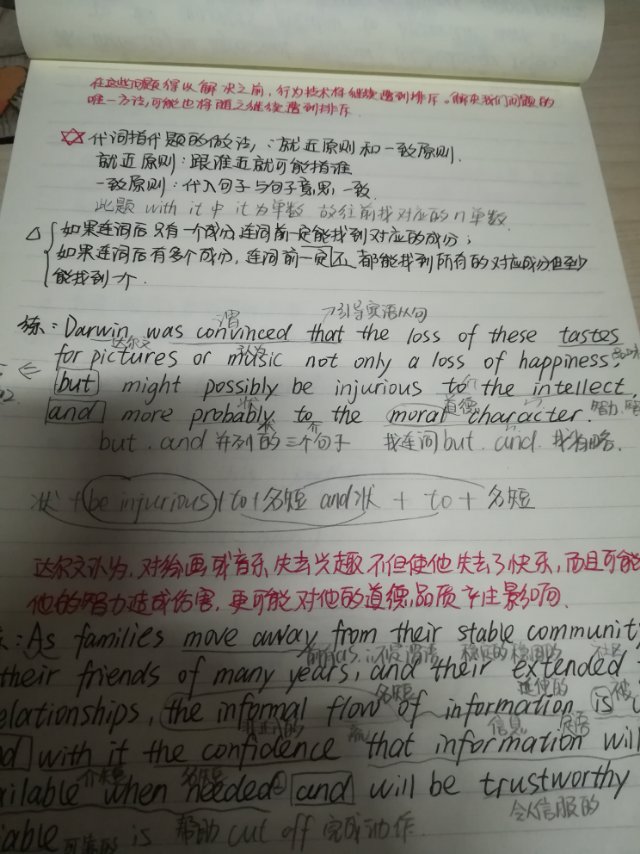 在这些问题得以解决之前,行为技术将继续遭到排斥。解决我们问题的
唯一方法,可能也将随之继续遭到排斥.
代词指代题的做法,:就近原则和一致原则.
就近原则:跟谁近就可能指谁
一致原则:代入句子与句子意思一致.
此题 with it 中 it 为单数 故往前找对应的n单数.
△ 如果连词后只有一个成分,连词前一定能找到对应的成分;
如果连词后有多个成分,连词前一定不都能找到所有的对应成分但至少
能找到一个.
谓 引导宾语从句
练:Darwin was convinced that the loss of these tastes
达尔文
for pictures or music not only a loss of happiness,
but might possibly be injurious to the intellect,
状 道德
and more probably to the moral character.
but. and 并列的三个句子 找连词 but. and. 找省略.
状 + be injurious + to + 名短 and 状 + to + 名短
达尔文认为,对绘画或音乐失去兴趣不但使他失去了快乐,而且可能
他的智力造成伤害,更可能对他的道德品质产生影响.
: As families move away from their stable community
their friends of many years, and their extended
elationships, the informal flow of information is
名短
信息
with it the confidence that information will
介短 名短
ailable when needed and will be trustworthy
令人信服的
iable 可靠的 is 帮助 cut off 完成动作.